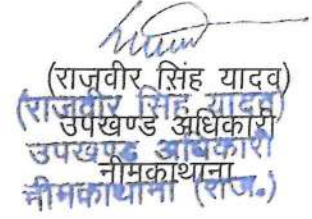 (राजवीर सिंह यादव)
(राजवीर सिंह यादव)
उपखण्ड अधिकारी
उपखण्ड अधिकारी
नीमकाथाना
नीमकाथाना (राज.)